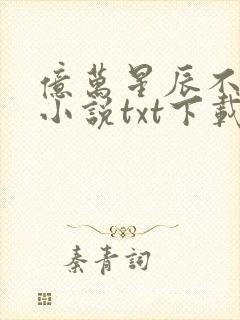 億萬星辰不
小說txt下載
秦青詞